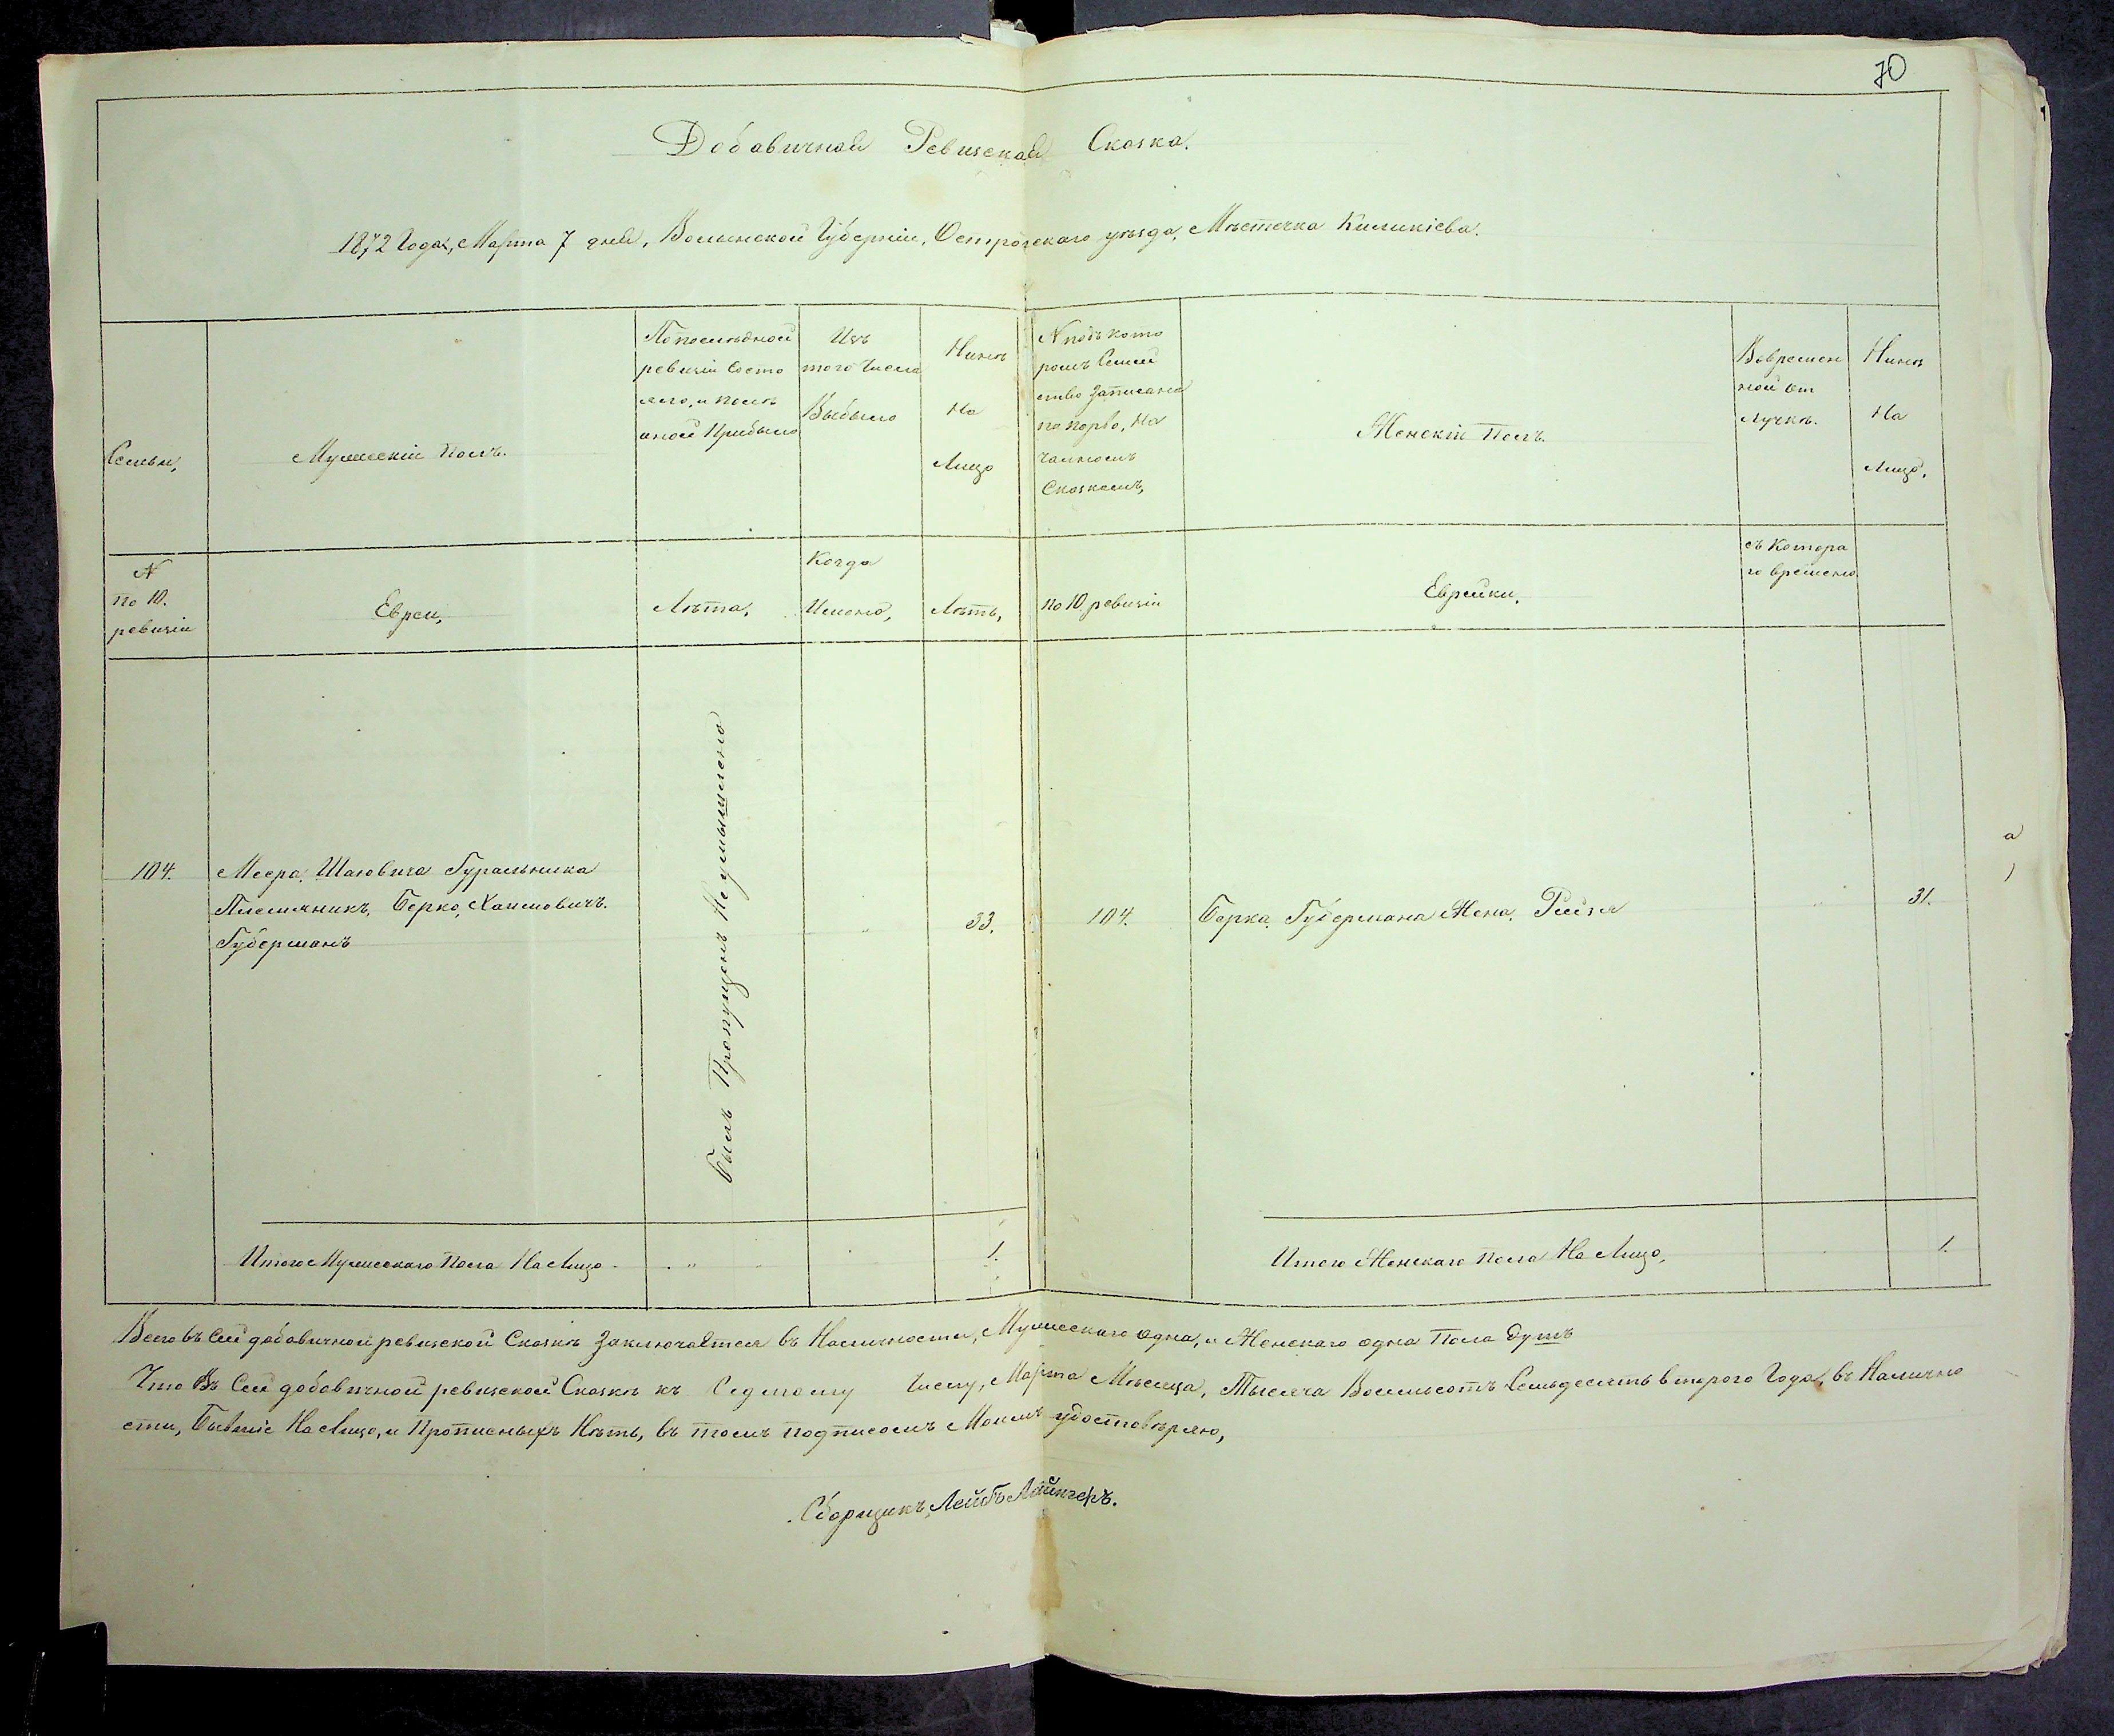 70
Добавичной Ревизской Сказка.
1872 Года, Марта 7 дня, Волынской Губерніи, Острожскаго уѣзда, Мѣстечка Киликіева.
Семьи,
Мужескій полъ.
По послѣдной
ревизіи состо
яло, и послѣ
оной прибыло
Изъ
того числа
Выбыло
Нинѣ
На
Лицо
N подъ кото
ромъ Семей
ство записано
Скаскомъ,
Женскій полъ.
Вовремен
ной от
лучкѣ.
Нинѣ
На
Лицо.
N
по 10.
ревизіи
Евреи,
Лѣта,
Когда
Именно,
Лѣтъ,
по 10 ревизіи
Еврейки,
съ котора
го времено
104.
Меера Шаевича Гуральника
Племянникъ, Берко, Хаимовичъ.
Губерманъ
Былъ Пропущенъ Неумышлено
33.
104.
Берка Губермана Жена Рейзя
31.
Итого Мужескаго Пола На Лицо
1.
Итого Женскаго Пола На Лицо,
1.
Всего въ Сей добавичной ревизской Сказкѣ заключается въ Наличности, Мужескаго одна, и Женскаго одна Пола душъ
Что Въ Сей добавичной ревизской Сказкѣ къ Седмому Числу, Марта Мѣсяца, Тысяча Восемьсотъ Семьдесятъ второго Года, въ Налично
сти, Бывшіе На Лицо, и Прописныхъ Нѣтъ, въ томъ подписомъ Моимъ удостовѣряю,
Сборщикъ, Лейбъ